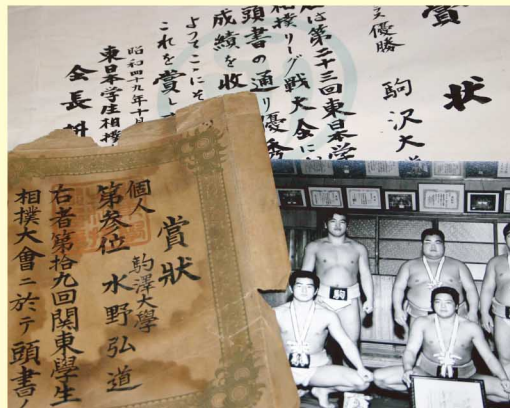 賞状
優勝 駒沢大
は第二十三回東日本学
相撲リーグ戦大会に
頭書の通り優秀
成績を収
よってここにそ
これを賞し
昭和四十九年十月
東日本学生相撲
会長
賞狀
個人 駒澤大學
第参位 水野弘道
右者第拾九回関東學生
相撲大會ニ於テ頭書ノ
駒